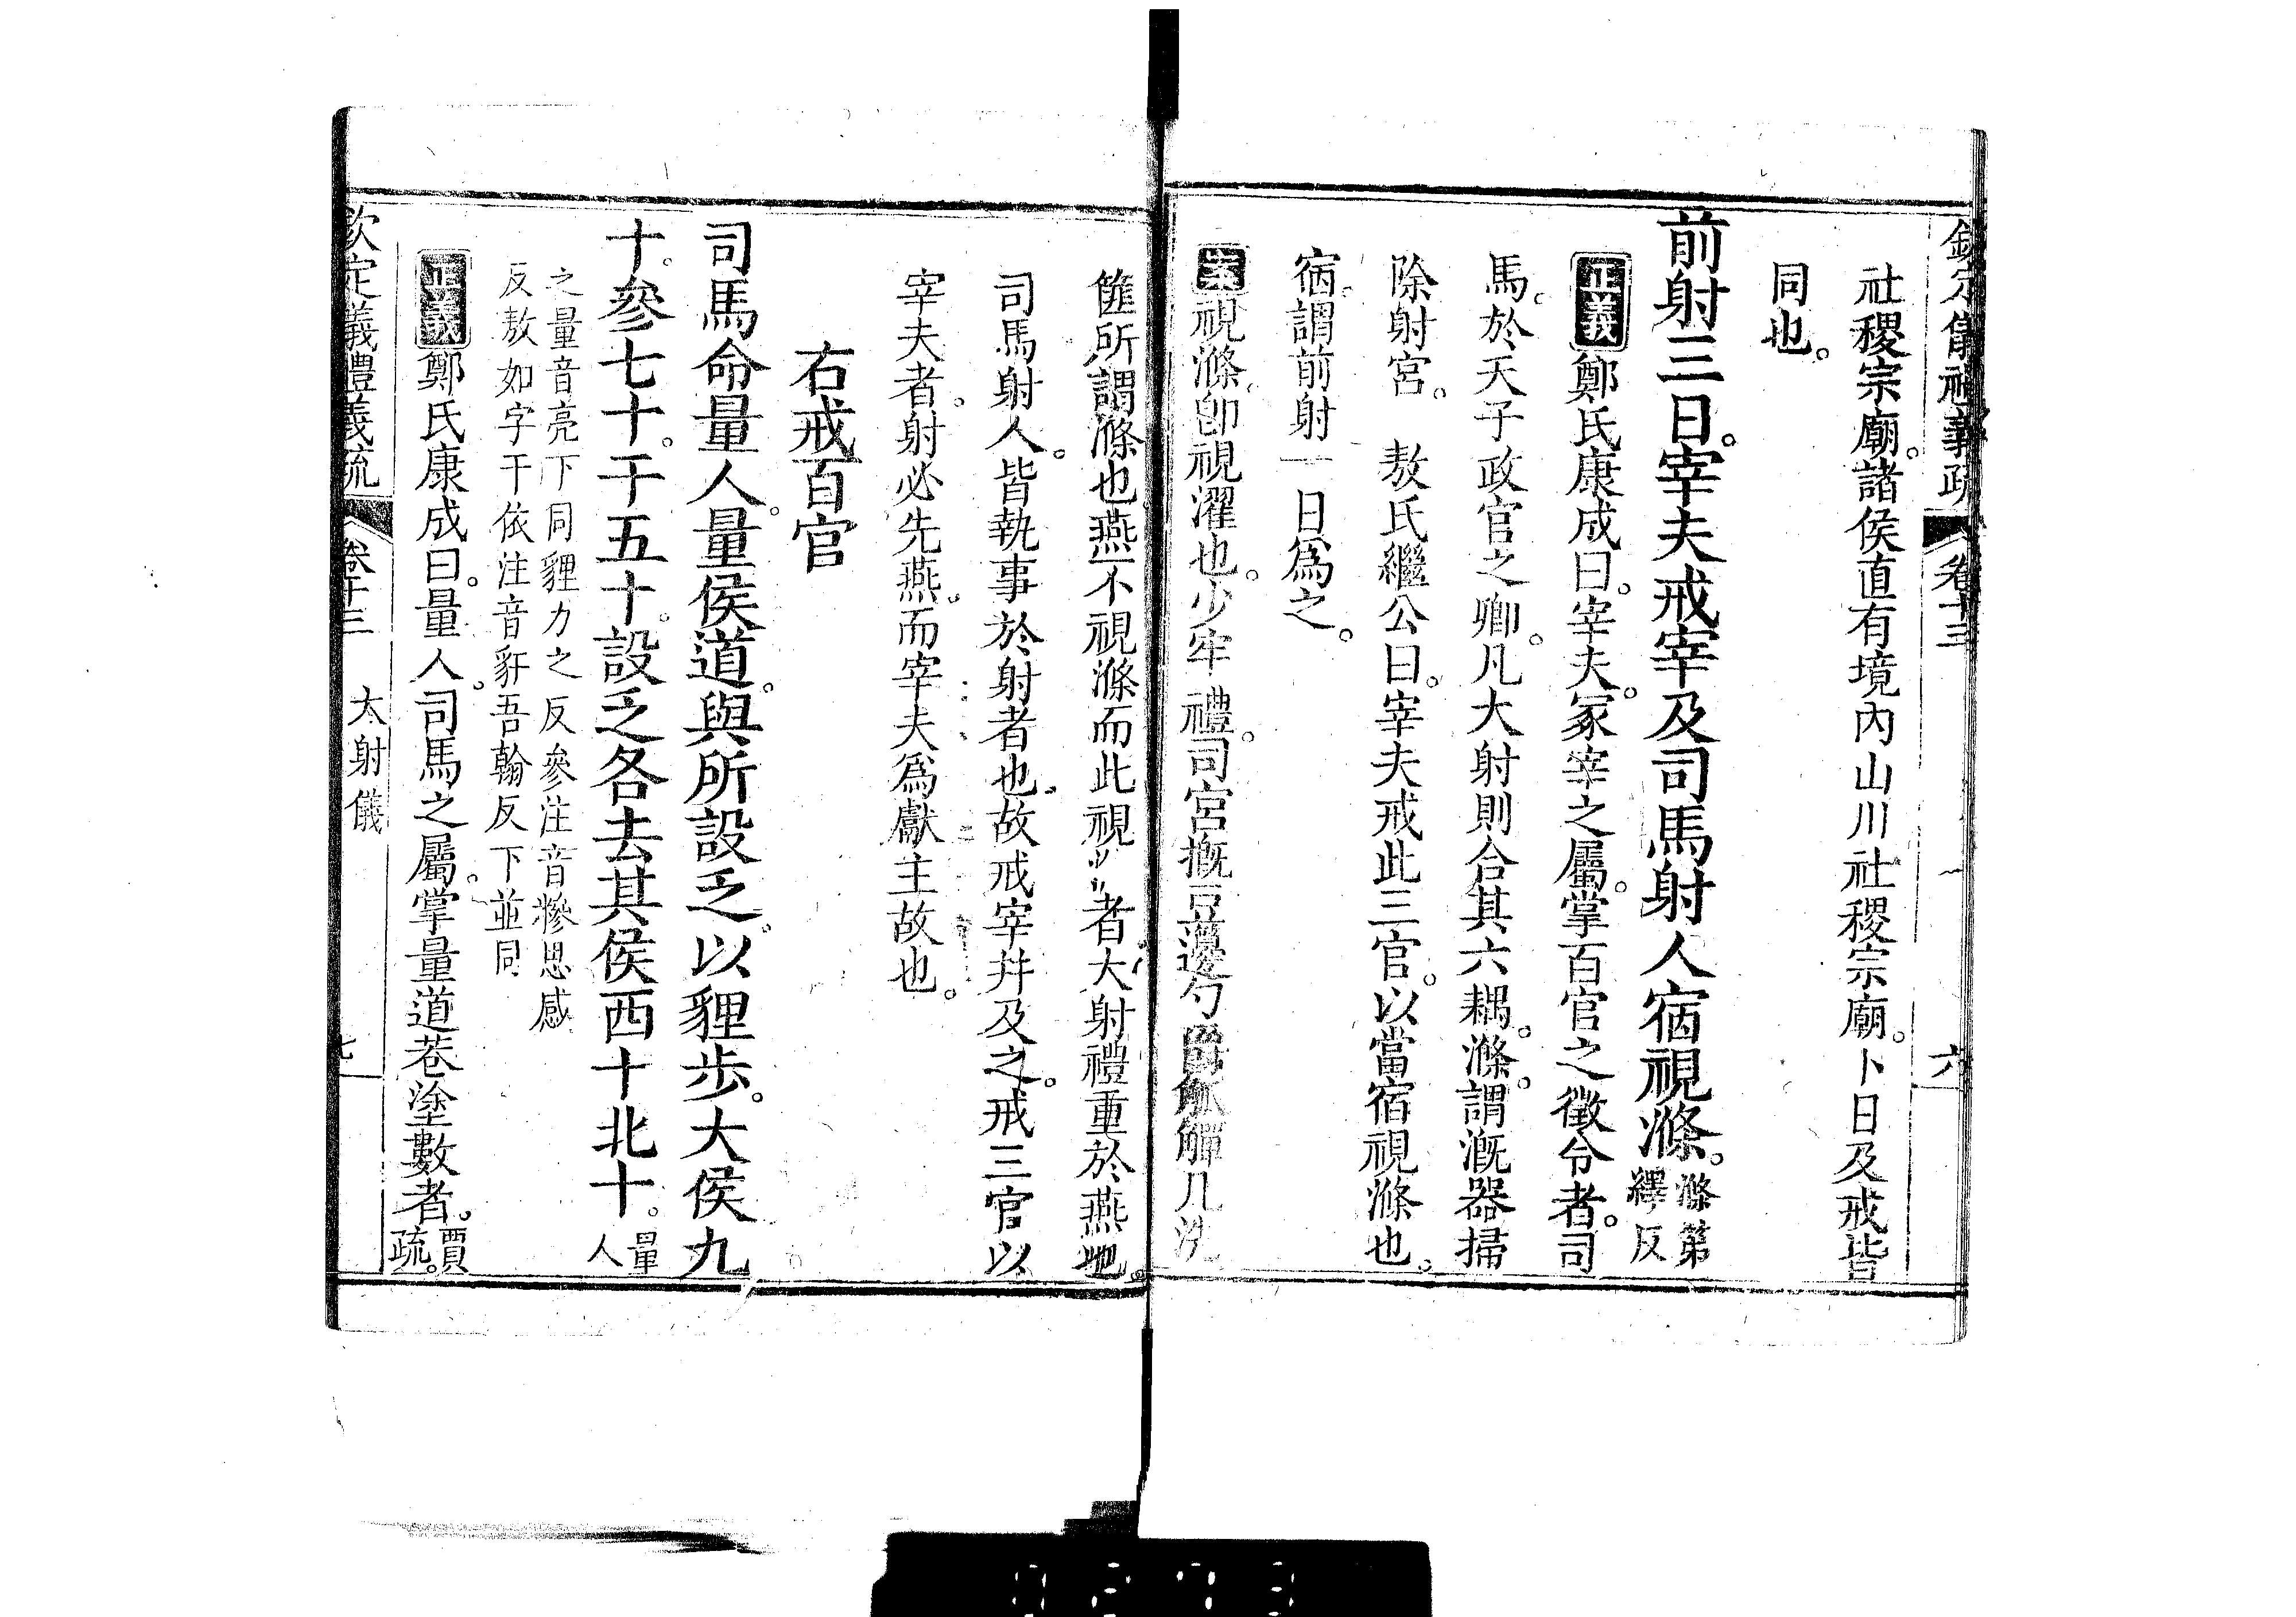 欽定儀禮義疏 卷十三 六
社稷宗廟。諸侯直有境內山川社稷宗廟。卜日及戒皆
同也。
前射三日。宰夫戒宰及司馬射人宿視滌。滌第
繹反
正義鄭氏康成曰。宰夫。冢宰之屬。掌百官之徵令者。司
馬。於天子政官之卿。凡大射則合其六耦。滌。謂溉器掃
除射宮。 敖氏繼公曰。宰夫戒此三官。以當宿視滌也。
宿。謂前射一日為之。
視滌。卽視濯也。少牢禮。司宮摡豆籩勺爵觚觶几洗
篚所謂滌也燕不視滌而此視 者大射禮重於燕也。
司馬射人。皆執事於射者也。故戒宰幷及之。戒三官以
宰夫者。射必先燕。而宰夫爲獻主故也。
右戒百官
司馬命量人。量侯道。與所設乏。以貍步。大侯九
十。參七十。干五十。設乏各去其侯西十北十。量
人
之量音亮下同貍力之反參注音糝思感
反敖如字干依注音豻吾翰反下並同
正義鄭氏康成曰。量人。司馬之屬。掌量道巷塗數者。賈
疏。
欽定儀禮義疏 卷十三 大射儀 七